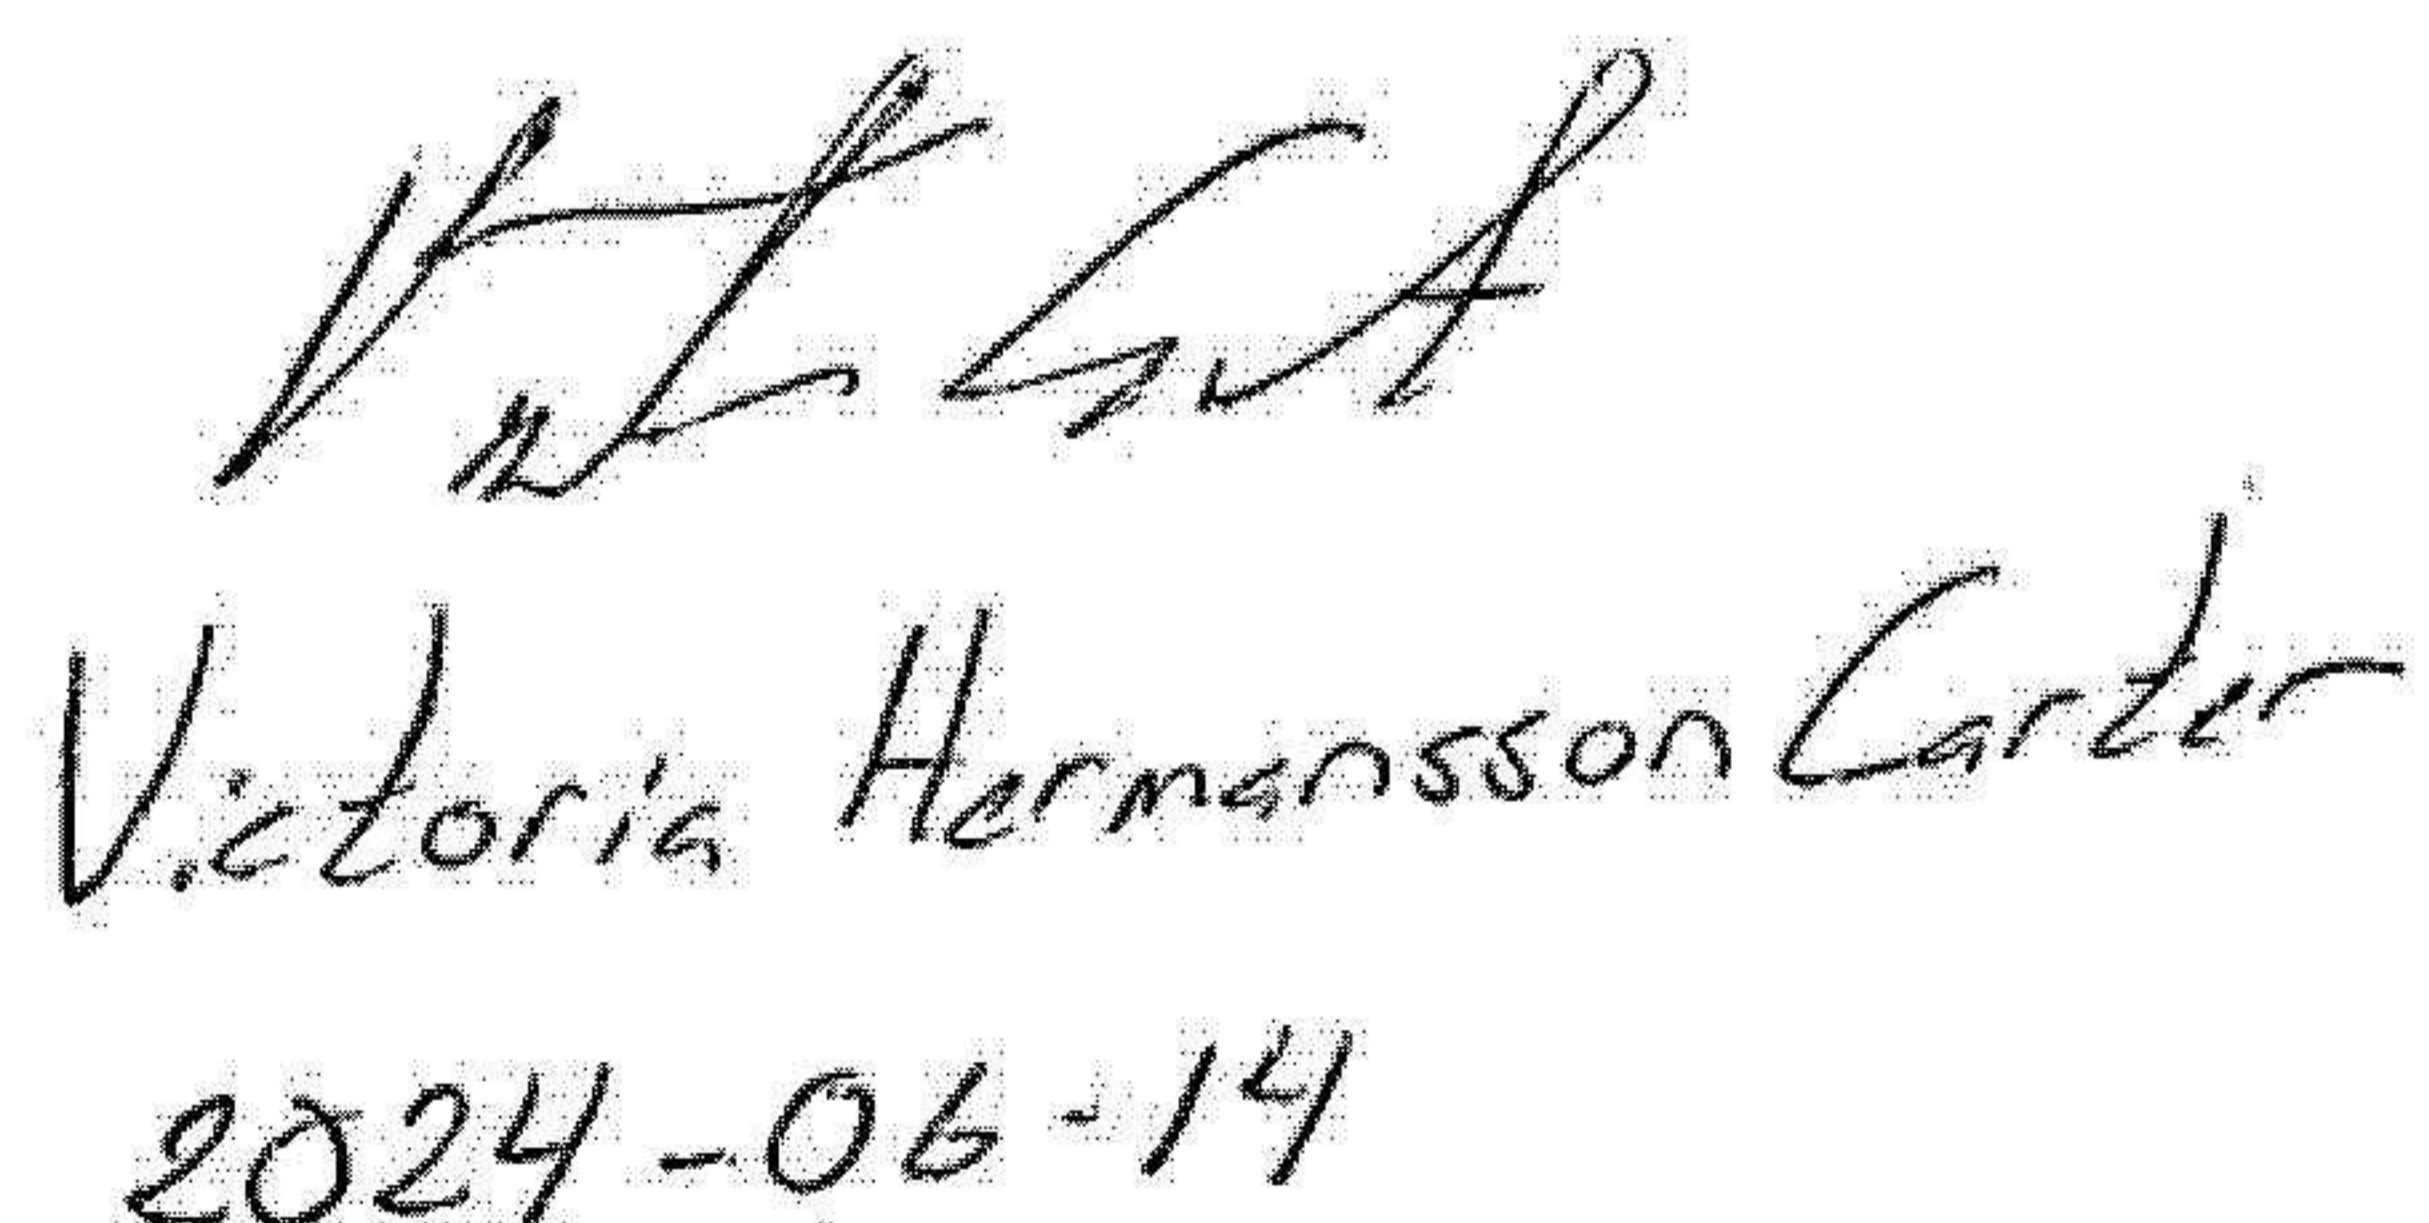 Victoria Hermansson Carter
2024-06-14